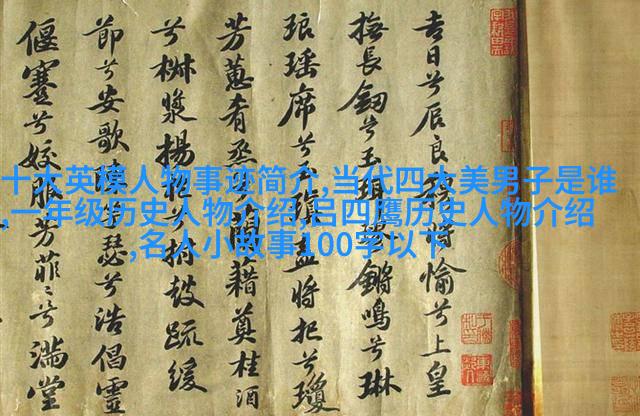 十大英模人物事迹简介,当代四大美男子是谁
,一年级历史人物介绍,吕四鹰历史人物介绍
,名人小故事100字以下
吉日兮辰良穆將愉兮上皇
撫長劒兮玉珥璆鏘鳴兮琳
琅瑤席兮玉瑱盍將把兮瓊
芳蕙肴烝兮蘭藉奠桂酒
兮椒漿揚枹兮拊鼓疏緩
節兮安歌陳竽瑟兮浩倡靈
偃蹇兮姣服芳菲〻兮滿堂